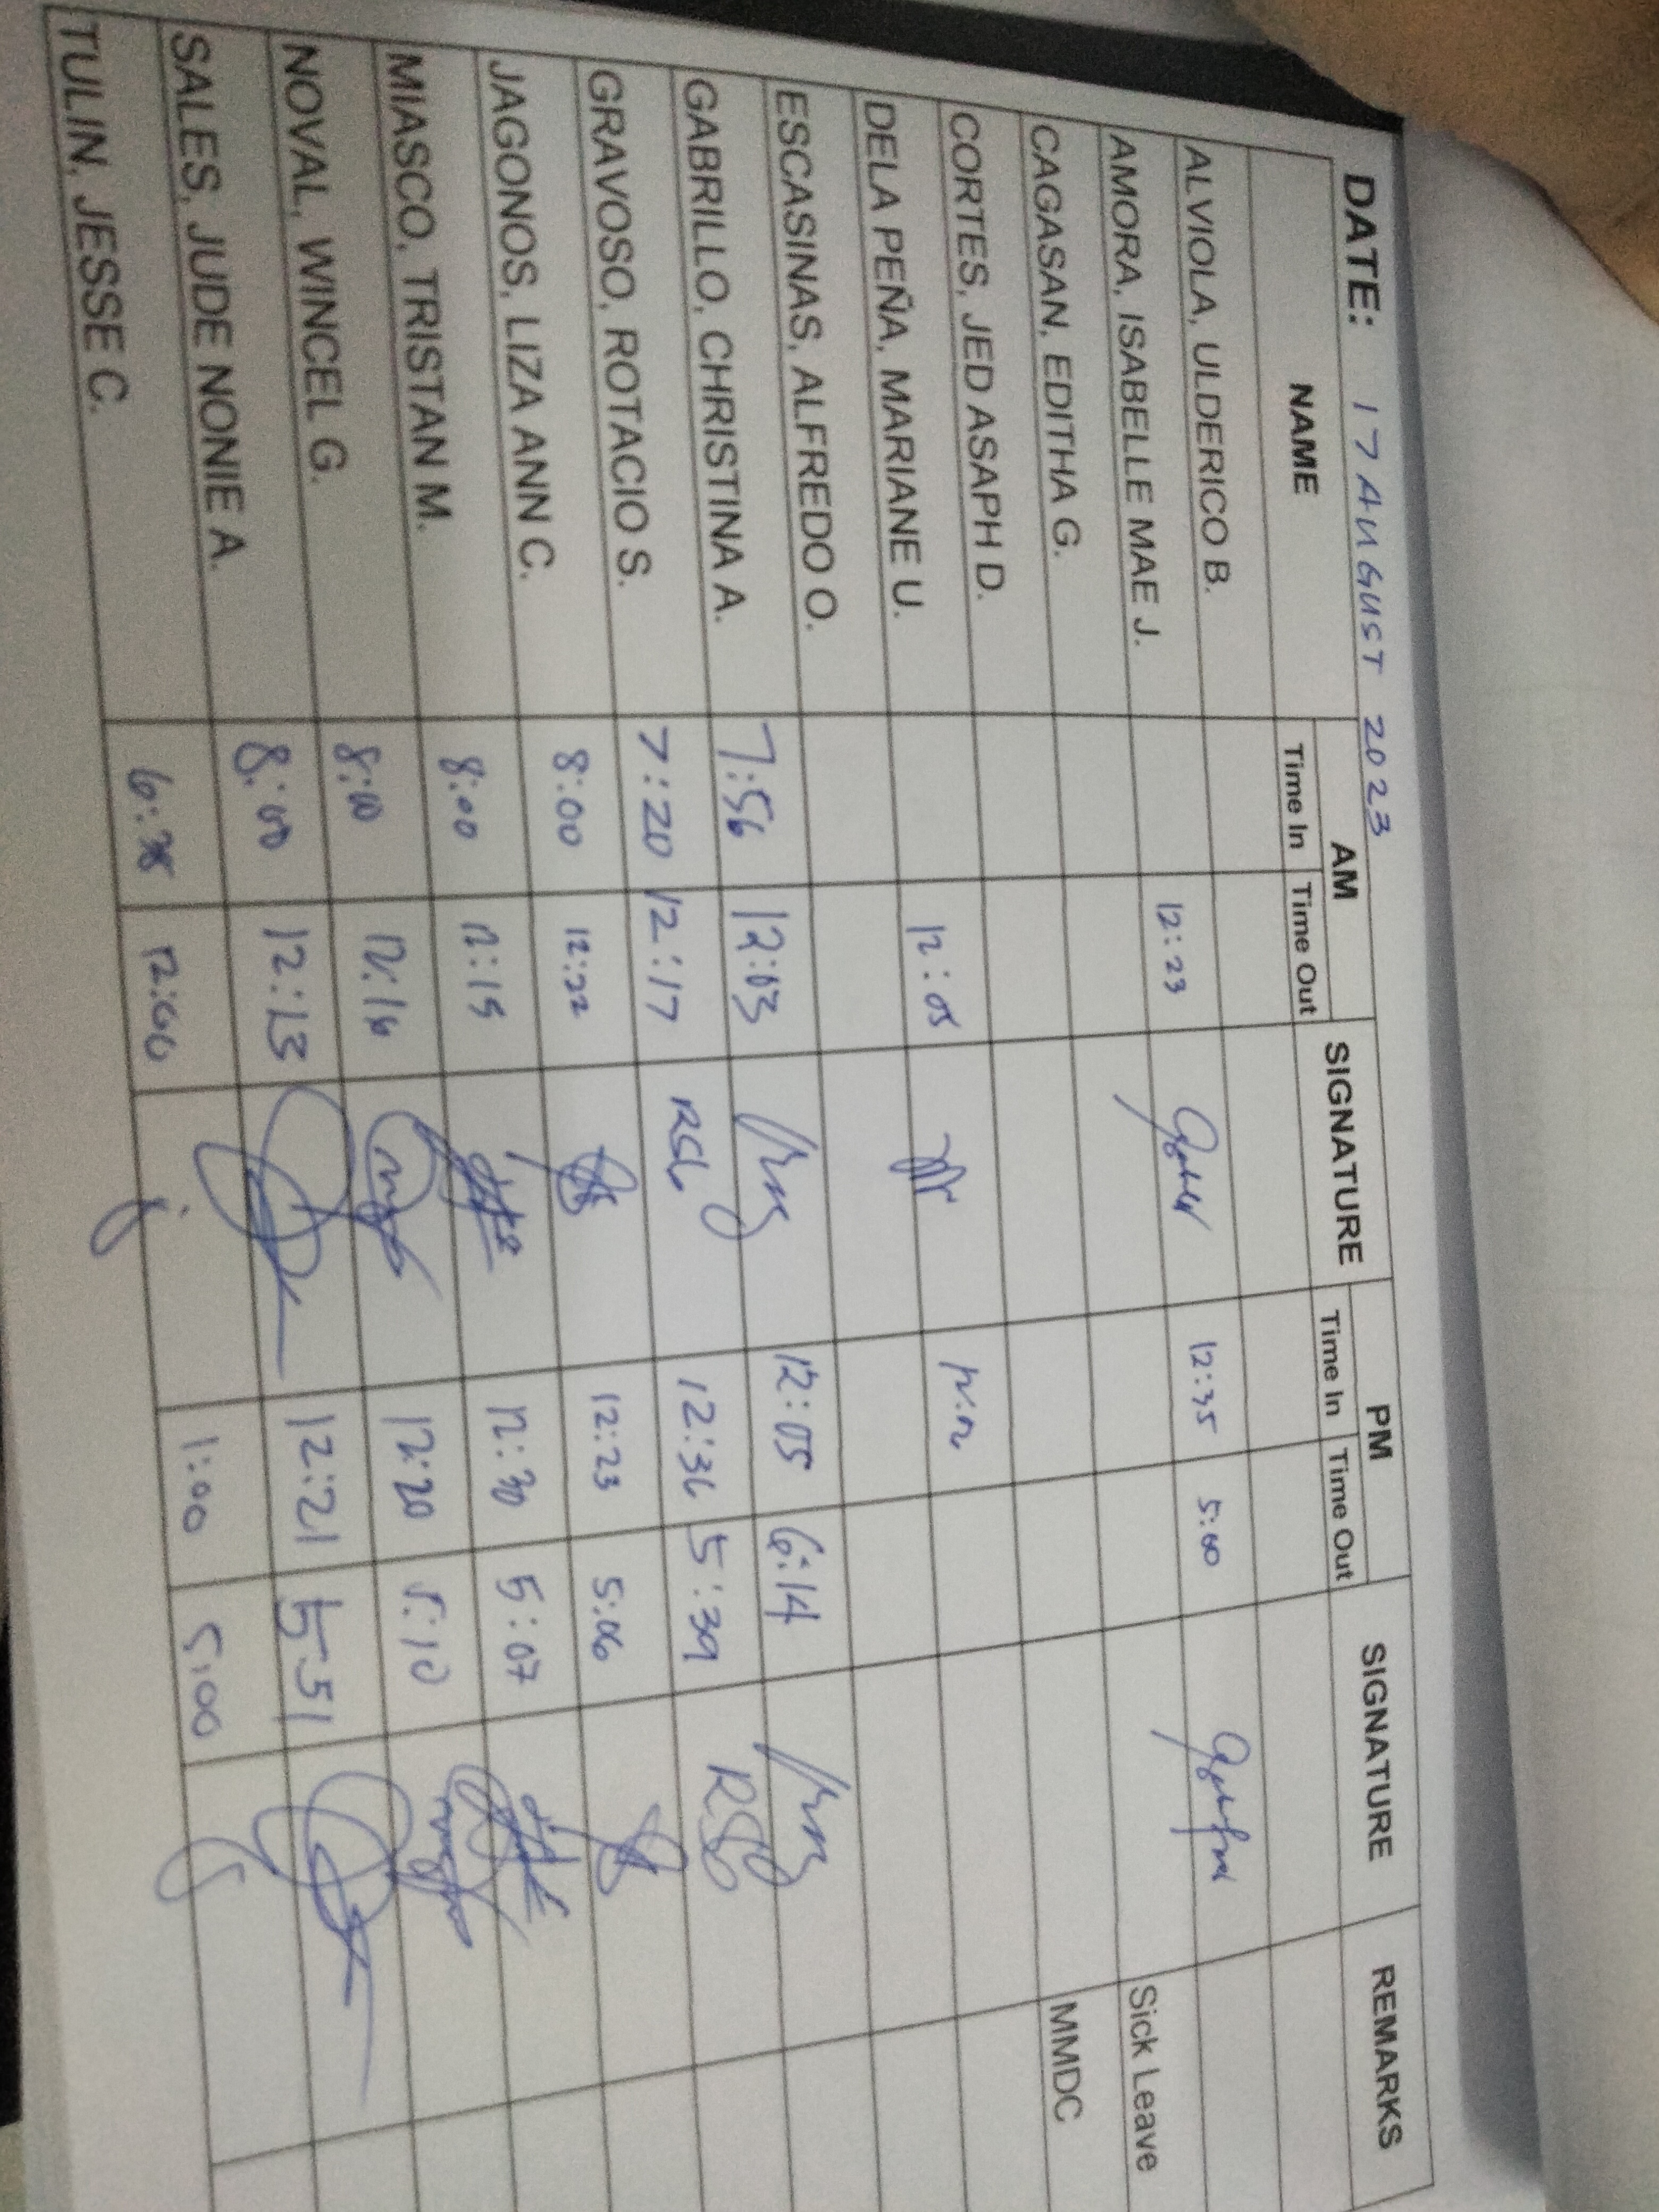 DATE: 17 AUGUST 2023
NAME AM SIGNATURE PM SIGNATURE REMARKS
Time In Time Out Time In Time Out
ALVIOLA, ULDERICO B.
AMORA, ISABELLE MAE J. 12:23 12:35 5:00
CAGASAN, EDITHA G. Sick Leave
CORTES, JED ASAPH D. MMDC
DELA PEÑA, MARIANE U. 12:05
ESCASINAS, ALFREDO O.
GABRILLO, CHRISTINA A. 7:56 12:03 12:05 6:14
GRAVOSO, ROTACIO S. 7:20 12:17 RSG 12:36 5:39 RSG
JAGONOS, LIZA ANN C. 8:00 12:22 12:23 5:06
MIASCO, TRISTAN M. 8:00 12:15 12:30 5:07
NOVAL, WINCEL G. 8:00 12:16 12:20 5:10
SALES, JUDE NONIE A. 8:00 12:13 12:21 5:51
TULIN, JESSE C. 12:00 1:00 5:00